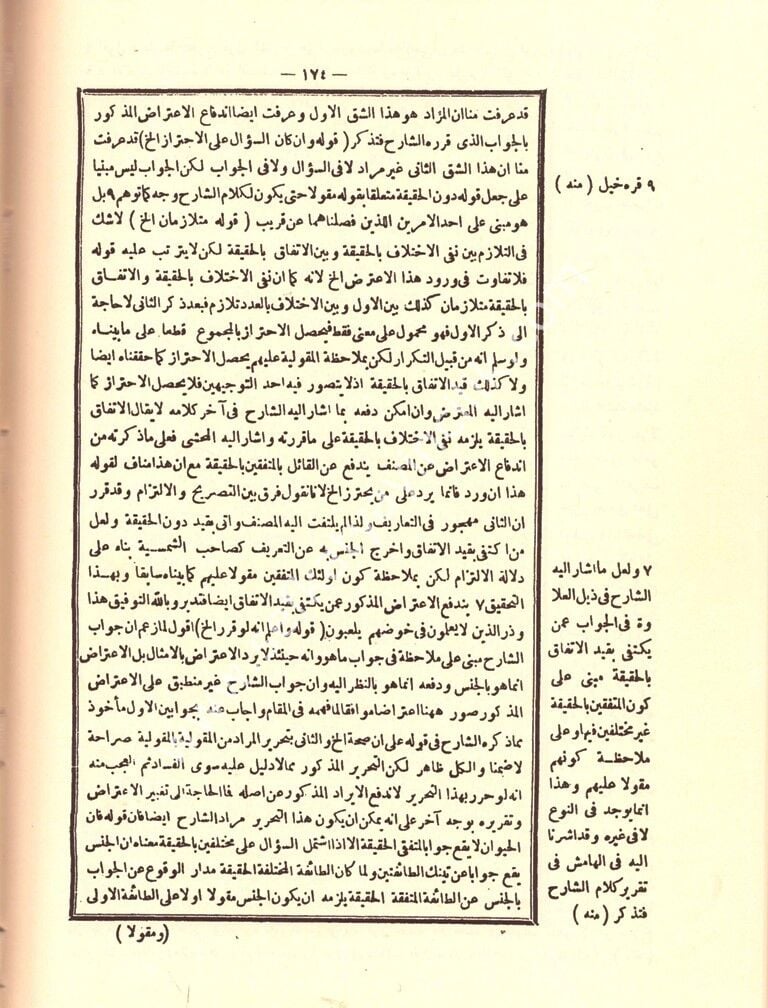 — ١٧٤ —
قد عرفت منا ان المراد هو هذا الشق الاول وعرفت ايضا اندفاع الاعتراض المذكور
بالجواب الذى قرره الشارح فتذكر ( قوله وان كان السؤال على الاحتراز الخ ) قد عرفت
منا ان هذا الشق الثانى غير مراد لا فى السؤال ولا فى الجواب لكن الجواب ليس مبنيا
على جعل قوله دون الحقيقة متعلقا بقوله مقولا حتى يكون لكلام الشارح وجه كما توهم ٩ بل
هو مبنى على احد الامرين اللذين فصلناهما عن قريب ( قوله متلازمان الخ ) لاشك
فى التلازم بين نفى الاختلاف بالحقيقة وبين الاتفاق بالحقيقة لكن لا يترتب عليه قوله
فلا تفاوت فى ورود هذا الاعتراض الخ لانه كما ان نفى الاختلاف بالحقيقة والاتفاق
بالحقيقة متلازمان كذلك بين الاول وبين الاختلاف بالعدد تلازم فبعد ذكر الثانى لاحاجة
الى ذكر الاول فهو محمول على معنى فقط فيحصل الاحتراز بالمجموع قطعا على مابيناه
ولو سلم انه من قبيل التكرار لكن بملاحظة المقولية عليهم يحصل الاحتراز كما حققناه ايضا
ولا كذلك قيد الاتفاق بالحقيقة اذ لا يتصور فيه احد التوجيهين فلا يحصل الاحتراز كما
اشار اليه المعترض وان امكن دفعه بما اشار اليه الشارح فى آخر كلامه لا يقال الاتفاق
بالحقيقة يلزمه نفى الاختلاف بالحقيقة على ماقررته واشار اليه المحشى فعلى ماذكرته من
اندفاع الاعتراض عن المصنف يندفع عن القائل بالمتفقين بالحقيقة مع ان هذا مناف لقوله
هذا ان ورد فانما يرد على من يحترز الخ لانا نقول فرق بين التصريح والالتزام وقد قرر
ان الثانى مهجور فى التعاريف ولذا لم يلتفت اليه المصنف واتى بقيد دون الحقيقة ولعل
من اكتفى بقيد الاتفاق واخرج الجنس به عن التعريف كصاحب الشمسية بناه على
دلالة الالتزام لكن بملاحظة كون اولئك المتفقين مقولا عليهم كما بيناه سابقا وبهذا
التحقيق ٧ يندفع الاعتراض المذكور عمن يكتفى بقيد الاتفاق ايضا فتدبر وبالله التوفيق هذا
وذر الذين لا يعلمون فى خوضهم يلعبون ( قوله واعلم انه لو قرر الخ ) اقول لما زعم ان جواب
الشارح مبنى على ملاحظة فى جواب ماهو وانه حينئذ لا يرد الاعتراض بالامثال بل الاعتراض
انما هو بالجنس ودفعه انما هو بالنظر اليه وان جواب الشارح غير منطبق على الاعتراض
المذكور صور ههنا اعتراضا موافقا لما فهمه فى المقام واجاب عنه بجوابين الاول مأخوذ
بما ذكره الشارح فى قوله على ان صحة الخ والثانى بتحرير المراد من المقولية بالمقولية صراحة
لا ضمنا والكل ظاهر لكن التحرير المذكور مما لا دليل عليه سوى الفساد ثم العجب منه
انه لو حرر بهذا التحرير لاندفع الايراد المذكور عن اصله فما الحاجة الى تغيير الاعتراض
وتقريره بوجه آخر على انه يمكن ان يكون هذا التحرير مراد الشارح ايضا فان قوله فان
الحيوان لا يقع جوابا لمتفقى الحقيقة الا اذا اشتمل السؤال على مختلفين بالحقيقة معناه ان الجنس
يقع جوابا عن تينك الطائفتين ولما كان الطائفة المختلفة الحقيقة مدار الوقوع عن الجواب
بالجنس عن الطائفة المتفقة الحقيقة يلزمه ان يكون الجنس مقولا اولا على الطائفة الاولى
( ومقولا )
٩ قره خيل ( منه )
٧ ولعل ما اشار اليه
الشارح فى ذيل العلا
وة فى الجواب عمن
يكتفى بقيد الاتفاق
بالحقيقة مبنى على
كون المتفقين بالحقيقة
غير مختلفين فيها وعلى
ملاحظة كونهم
مقولا عليهم وهذا
انما يوجد فى النوع
لا فى غيره وقد اشرنا
اليه فى الهامش فى
تقرير كلام الشارح
فتذكر ( منه )